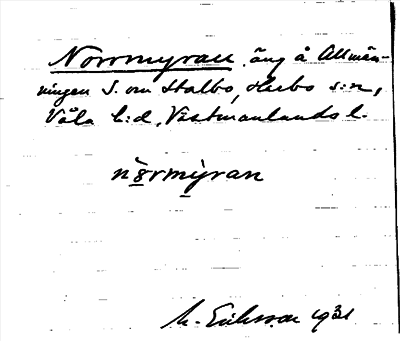 Norrmyran, äng å Allmän-
ningen S. om Stalbo, Huddungs s:n,
Våla h:d, Västmanlands l.
nòrmỳran
M. Eriksson 1931